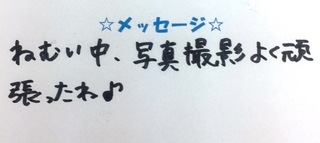 ☆メッセージ☆
ねむい中、写真撮影よく頑
張ったね♪